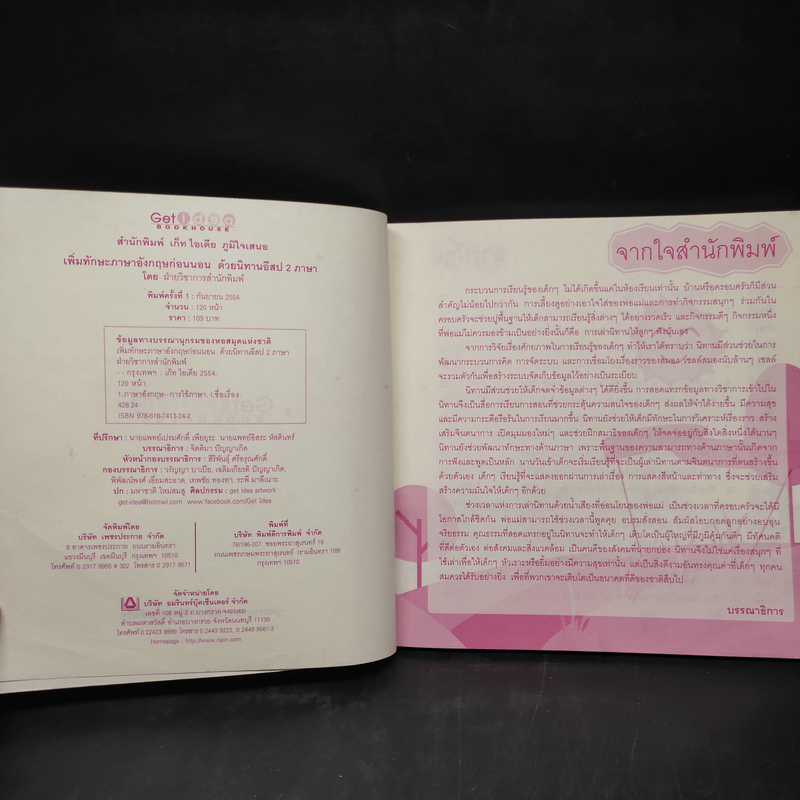 Get Idea
BOOKHOUSE
สำนักพิมพ์ เก็ท ไอเดีย ภูมิใจเสนอ
เพิ่มทักษะภาษาอังกฤษก่อนนอน ด้วยนิทานอีสป 2 ภาษา
โดย ฝ่ายวิชาการสำนักพิมพ์
พิมพ์ครั้งที่ 1 : กันยายน 2554
จำนวน : 120 หน้า
ราคา : 109 บาท
ข้อมูลทางบรรณานุกรมของหอสมุดแห่งชาติ
เพิ่มทักษะภาษาอังกฤษก่อนนอน ด้วยนิทานอีสป 2 ภาษา
ฝ่ายวิชาการสำนักพิมพ์
- - กรุงเทพฯ : เก็ท ไอเดีย 2554.
120 หน้า.
1.ภาษาอังกฤษ--การใช้ภาษา. I.ชื่อเรื่อง.
428.24
ISBN 978-616-7413-24-2
ที่ปรึกษา : นายแพทย์เปรมศักดิ์ เพียยุระ นายแพทย์อิสระ หัสดินทร์
บรรณาธิการ : จิตติมา ปัญญาเกิด
หัวหน้ากองบรรณาธิการ : สิริพันธุ์ ศรีอรุณศักดิ์
กองบรรณาธิการ : วรัญญา บาเปีย, เฉลิมเกียรติ ปัญญาเกิด,
พิพัฒน์พงศ์ เอี่ยมสะอาด, เทพชัย ทองทา, ระพี มาลีเนาะ
ปก : มหาชาติ ใหม่สมธุ ศิลปกรรม : get idea artwork
get-idea@hotmail.com www.facebook.com/Get Idea
จัดพิมพ์โดย
บริษัท เพชรประกาย จำกัด
8 อาคารเพชรประกาย ถนนรามอินทรา
แขวงมีนบุรี เขตมีนบุรี กรุงเทพฯ 10510
โทรศัพท์ 0 2917 9955 # 302 โทรสาร 0 2917 9571
พิมพ์ที่
บริษัท พิมพ์ดีการพิมพ์ จำกัด
78/196-207 ซอยพระยาสุเรนทร์ 19
ถนนเพชรเกษมพระยาสุเรนทร์ (รามอินทรา 109)
กรุงเทพฯ 10510
จัดจำหน่ายโดย
บริษัท อมรินทร์บุ๊คเซ็นเตอร์ จำกัด
เลขที่ 108 หมู่ 2 ถ.บางกรวย-จงถนอม
ตำบลมหาสวัสดิ์ อำเภอบางกรวย จังหวัดนนทบุรี 11130
โทรศัพท์ 0 22423 9999 โทรสาร 0 2449 9222, 0 2449 9561-3
Homepage : http://www.naiin.com
จากใจสำนักพิมพ์
กระบวนการเรียนรู้ของเด็กๆ ไม่ได้เกิดขึ้นแค่ในห้องเรียนเท่านั้น บ้านหรือครอบครัวก็มีส่วน
สำคัญไม่น้อยไปกว่ากัน การเลี้ยงดูอย่างเอาใจใส่ของพ่อแม่และการทำกิจกรรมสนุกๆ ร่วมกันใน
ครอบครัวจะช่วยปูพื้นฐานให้เด็กสามารถเรียนรู้สิ่งต่างๆ ได้อย่างรวดเร็ว และกิจกรรมดีๆ กิจกรรมหนึ่ง
ที่พ่อแม่ไม่ควรมองข้ามเป็นอย่างยิ่งนั้นก็คือ การเล่านิทานให้ลูกๆ ฟังนั่นเอง
จากการวิจัยเรื่องศักยภาพในการเรียนรู้ของเด็กๆ ทำให้เราได้ทราบว่า นิทานมีส่วนช่วยในการ
พัฒนากระบวนการคิด การจัดระบบ และการเชื่อมโยงเรื่องราวของสมอง เซลล์สมองนับล้านๆ เซลล์
จะรวมตัวกันเพื่อสร้างระบบจัดเก็บข้อมูลไว้อย่างเป็นระเบียบ
นิทานมีส่วนช่วยให้เด็กจดจำข้อมูลต่างๆ ได้ดียิ่งขึ้น การสอดแทรกข้อมูลทางวิชาการเข้าไปใน
นิทานจึงเป็นสื่อการเรียนการสอนที่ช่วยกระตุ้นความสนใจของเด็กๆ ส่งผลให้จำได้ง่ายขึ้น มีความสุข
และมีความกระตือรือร้นในการเรียนมากขึ้น นิทานยังช่วยให้เด็กมีทักษะในการวิเคราะห์เรื่องราว สร้าง
เสริมจินตนาการ เปิดมุมมองใหม่ๆ และช่วยฝึกสมาธิของเด็กๆ ให้จดจ่ออยู่กับสิ่งใดสิ่งหนึ่งได้นานๆ
นิทานยังช่วยพัฒนาทักษะทางด้านภาษา เพราะพื้นฐานของความสามารถทางด้านภาษานั้นเกิดจาก
การฟังและพูดเป็นหลัก นานวันเข้าเด็กจะเริ่มเรียนรู้ที่จะเป็นผู้เล่านิทานตามจินตนาการที่ตนสร้างขึ้น
ด้วยตัวเอง เด็กๆ เรียนรู้ที่จะแสดงออกผ่านการเล่าเรื่อง การแสดงสีหน้าและท่าทาง ซึ่งจะช่วยเสริม
สร้างความมั่นใจให้เด็กๆ อีกด้วย
ช่วงเวลาแห่งการเล่านิทานด้วยน้ำเสียงที่อ่อนโยนของพ่อแม่ เป็นช่วงเวลาที่ครอบครัวจะได้มี
โอกาสใกล้ชิดกัน พ่อแม่สามารถใช้ช่วงเวลานี้พูดคุย อบรมสั่งสอน สัมผัสโอบกอดลูกอย่างอบอุ่น
จริยธรรม คุณธรรมที่สอดแทรกอยู่ในนิทานจะทำให้เด็กๆ เติบโตเป็นผู้ใหญ่ที่มีภูมิคุ้มกันดีๆ มีทัศนคติ
ที่ดีต่อตัวเอง ต่อสังคมและสิ่งแวดล้อม เป็นคนดีของสังคมที่น่ายกย่อง นิทานจึงไม่ใช่แค่เรื่องสนุกๆ ที่
ใช้เล่าเพื่อให้เด็กๆ หัวเราะหรือยิ้มอย่างมีความสุขเท่านั้น แต่เป็นสิ่งดีงามอันทรงคุณค่าที่เด็กๆ ทุกคน
สมควรได้รับอย่างยิ่ง เพื่อที่พวกเขาจะเติบโตเป็นอนาคตที่ดีของชาติสืบไป
บรรณาธิการ